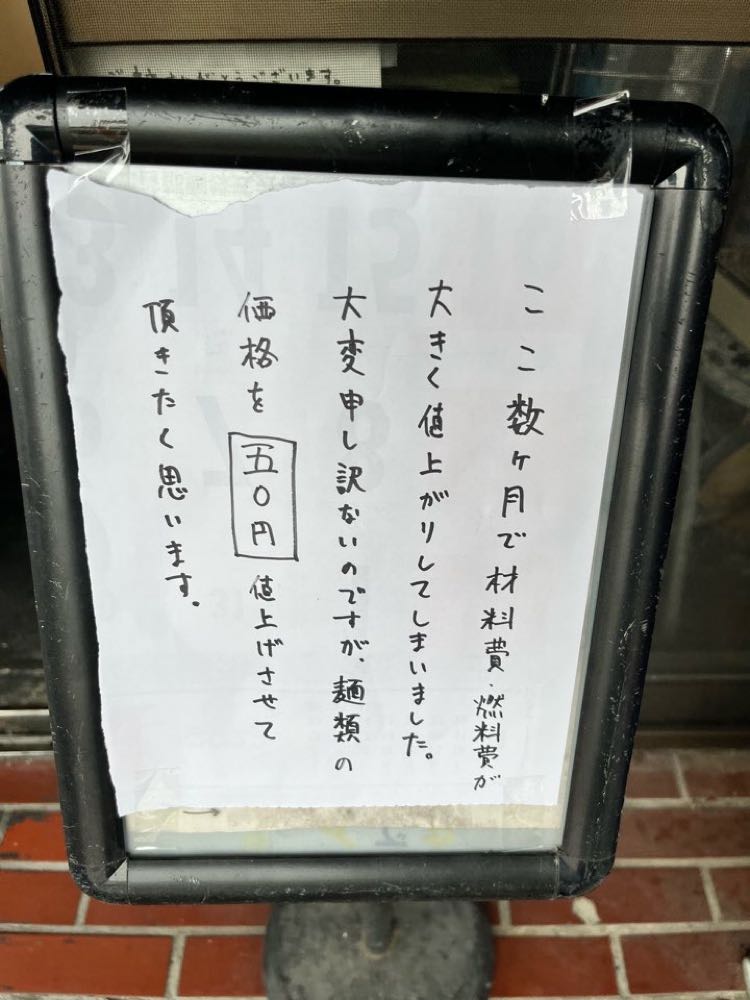 ここ数ヶ月で材料費・燃料費が
大きく値上がりしてしまいました。
大変申し訳ないのですが、麺類の
価格を五〇円値上げさせて
頂きたく思います。